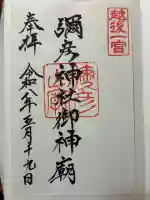 越後一宮
奉拝
彌彦神社御神廟
令和八年五月十九日